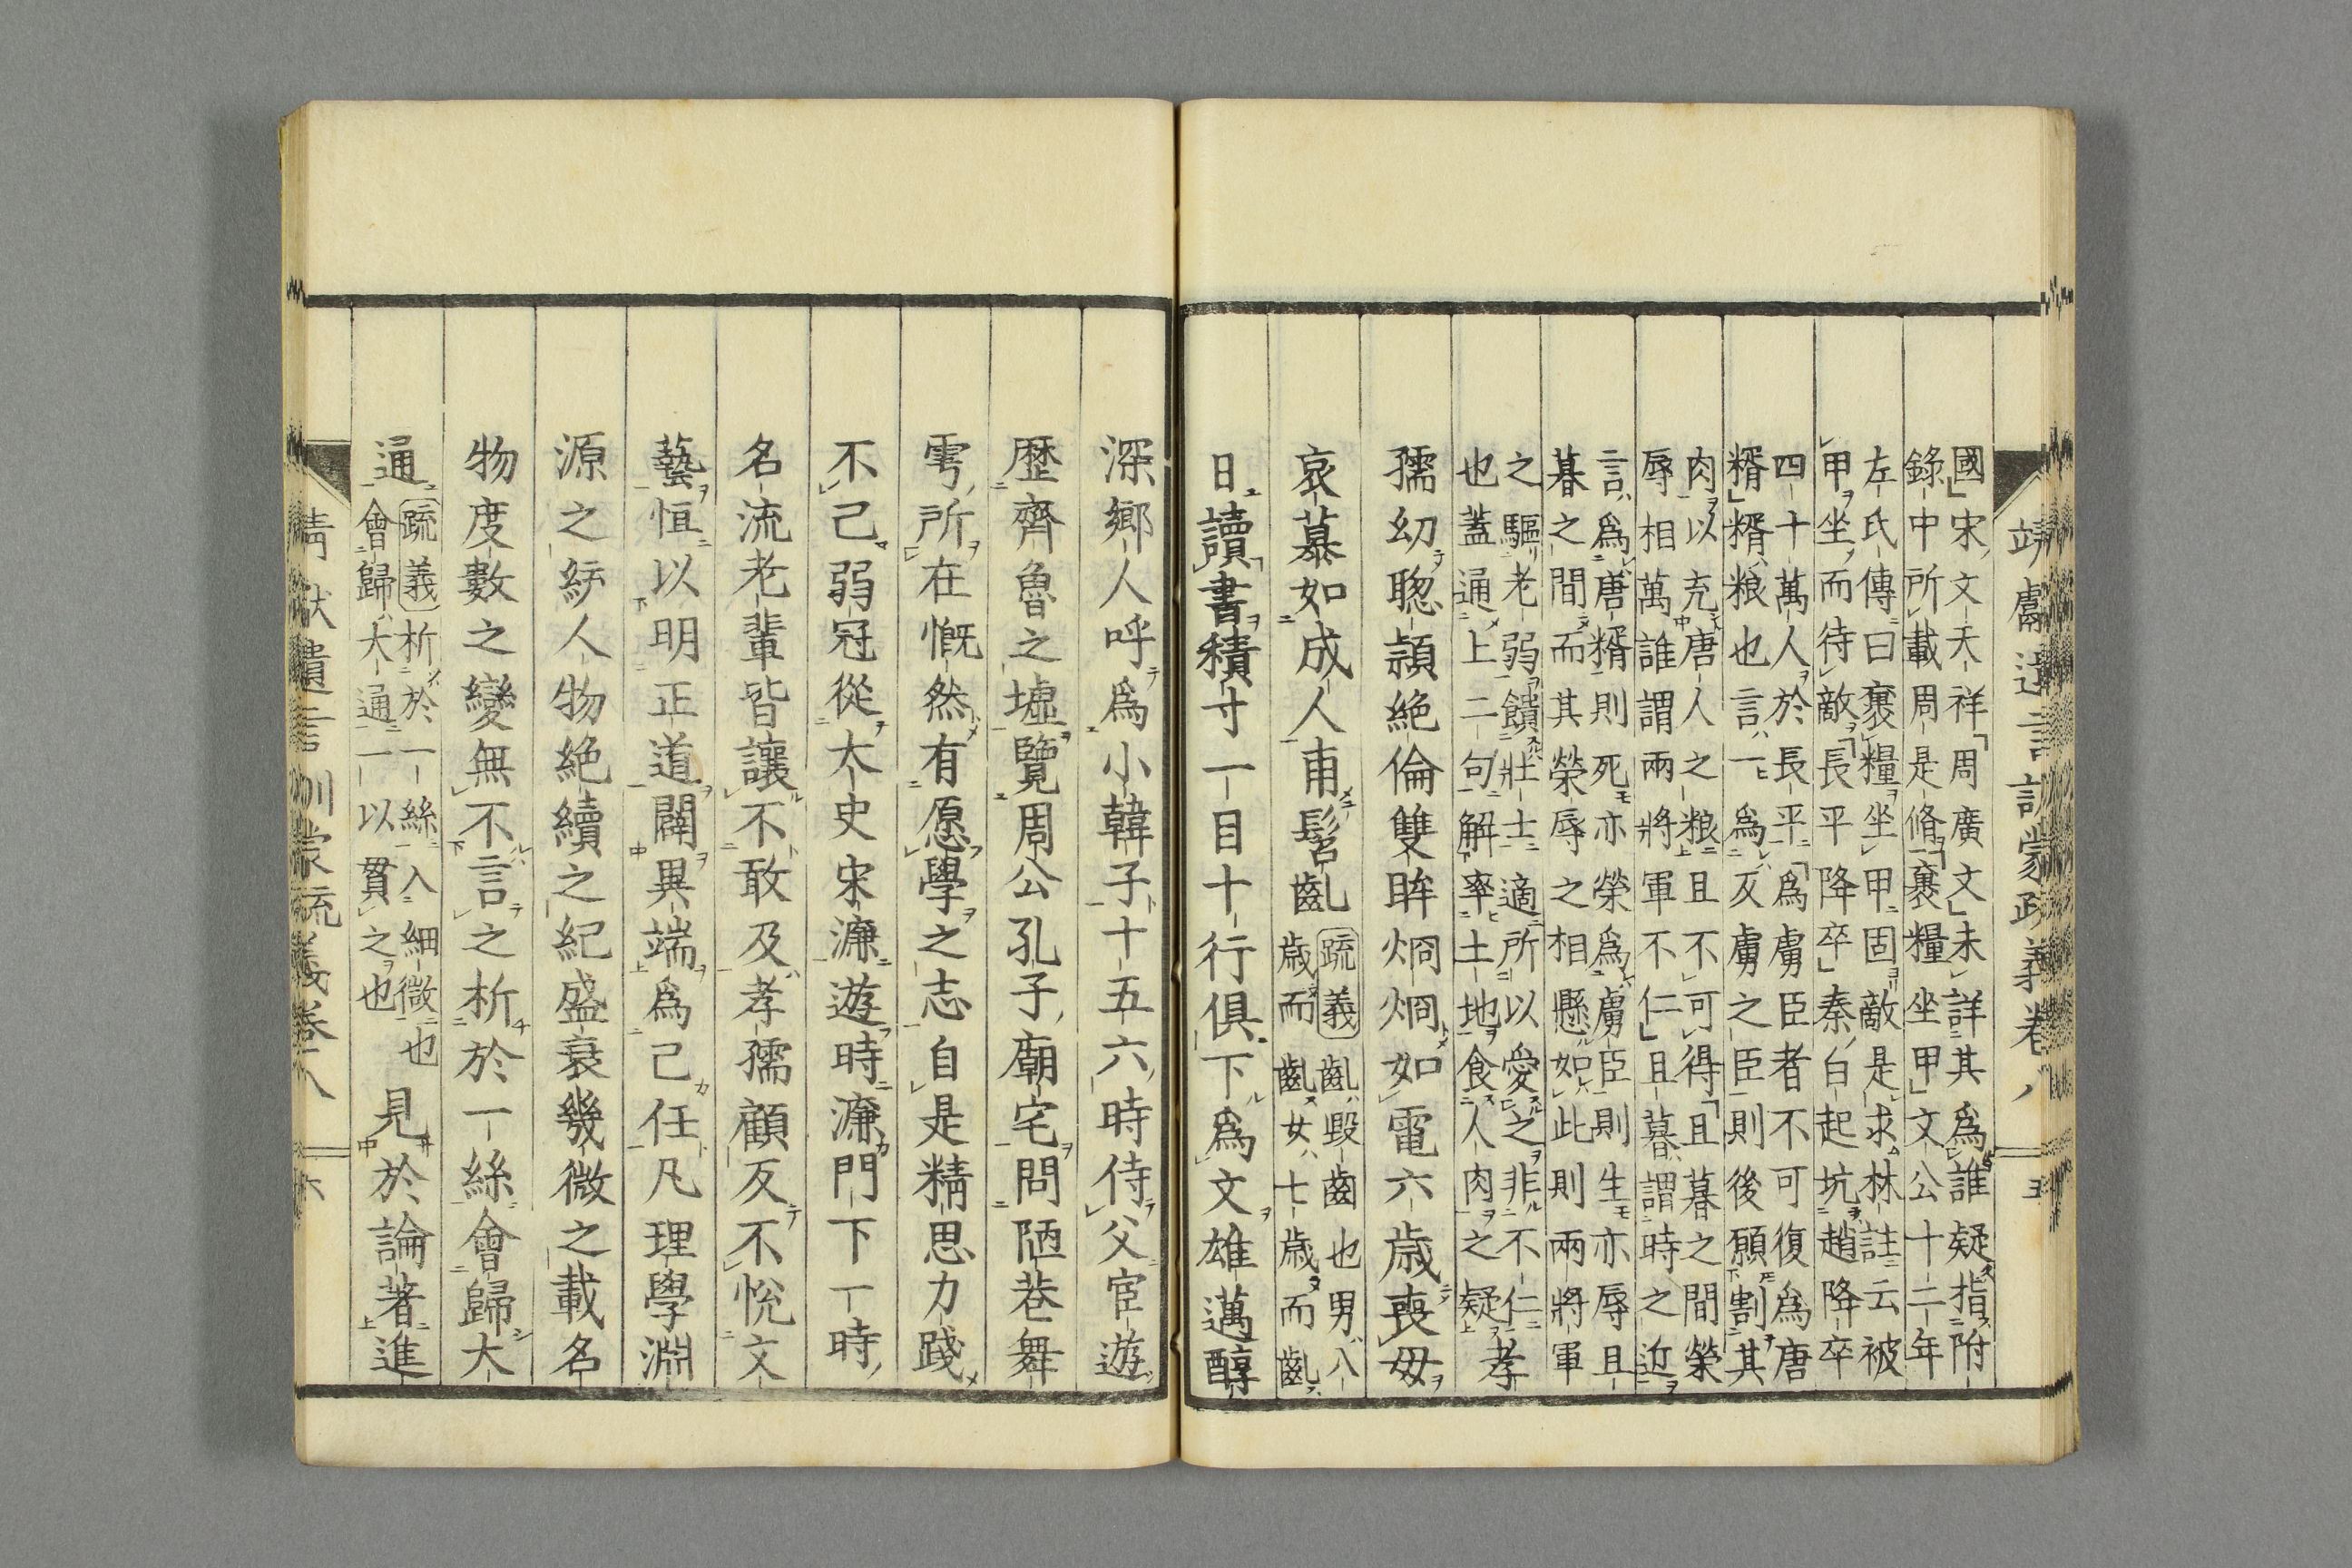 國宋文天祥周廣文未詳其爲誰疑指附
錄中所載周是脩褁糧坐甲文公十二年
左氏傳曰褁糧坐甲固敵是求林註云被
甲坐而待敵長平降卒秦白起坑趙降卒
四十萬人於長平爲虜臣者不可復爲唐
糈糈粮也言一爲反虜之臣則後願割其
肉以充唐人之粮且不可得且暮之間榮
辱相萬誰謂兩將軍不仁且暮謂時之近
言爲唐糈則死亦榮爲虜臣則生亦辱且
暮之間而其榮辱之相懸如此則兩將軍
之驅老弱饋壯士適所以愛之非不仁孝
也蓋通上二句解率土地食人肉之疑
孺幼聰頴絶倫雙眸烱烱如電六歳喪毋
哀慕如成人甫髫齓
疏義齓毀齒也男八
歳而齓女七歳而齓
日讀書積寸一目十行俱下爲文雄邁醇
深鄉人呼爲小韓子十五六時侍父宦遊
歷齊魯之墟覽周公孔子廟宅問陋巷舞
雩所在慨然有愿學之志自是精思力踐
不已弱冠從太史宋濂遊時濂門下一時
名流老輩皆讓不敢及孝孺顧反不悅文
藝恒以明正道闢異端爲己任凡理學淵
源之紆人物絶續之紀盛衰幾微之載名
物度數之變無不言之析於一絲會歸大
通
疏義析於一絲入細微也
會歸大通一以貫之也
見於論著進